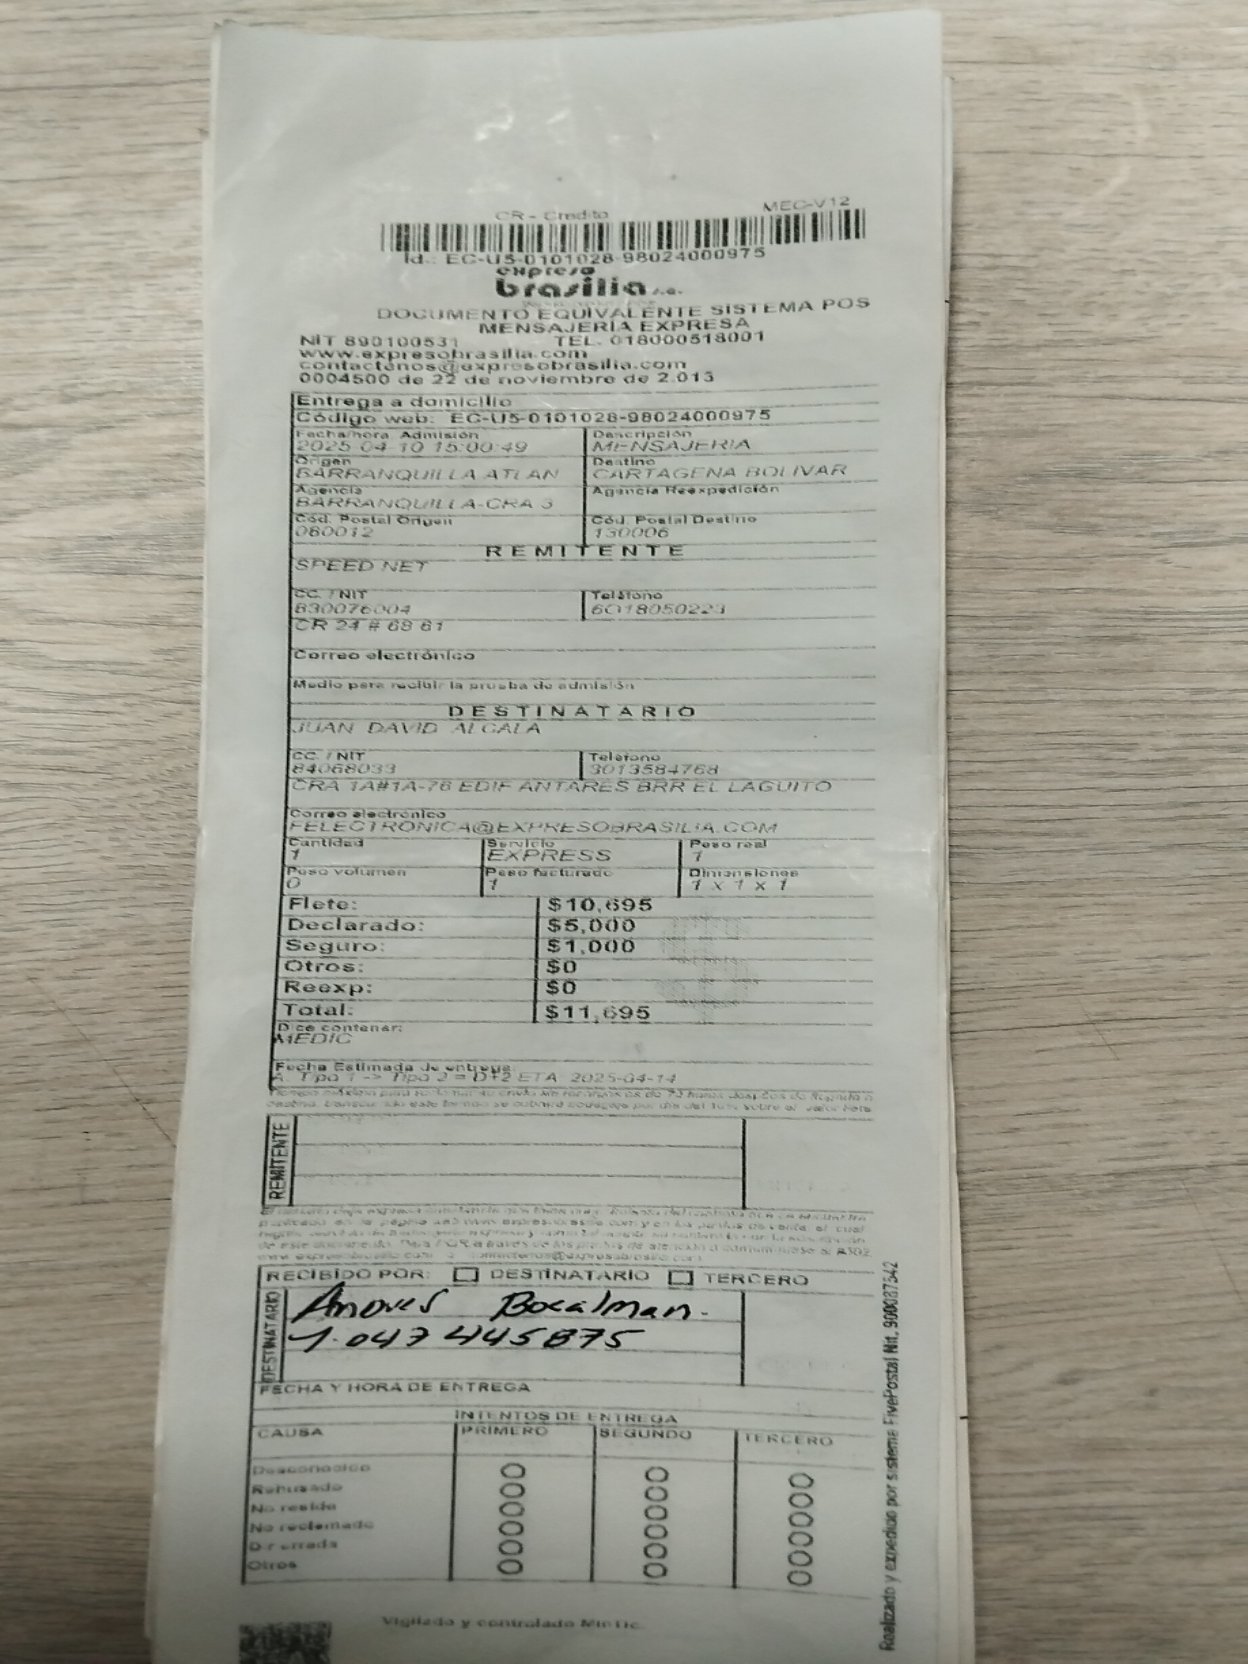 CR - Credito MEC-V12
Id.: EC-U5-0101028-98024000975
expreso
brasilia s.a.
DOCUMENTO EQUIVALENTE SISTEMA POS
MENSAJERIA EXPRESA
NIT 890100531 TEL. 018000518001
www.expresobrasilia.com
contactenos@expresobrasilia.com
0004500 de 22 de noviembre de 2.013
Entrega a domicilio
Código web: EC-U5-0101028-98024000975
Fecha/hora Admisión Descripción
2025-04-10 15:00:49 MENSAJERIA
Origen Destino
BARRANQUILLA ATLAN CARTAGENA BOLIVAR
Agencia Agencia Reexpedición
BARRANQUILLA-CRA 3
Cód. Postal Origen Cód. Postal Destino
080012 130006
REMITENTE
SPEED NET
CC. / NIT Teléfono
830076004 6018050223
CR 24 # 68 61
Correo electrónico
Medio para recibir la prueba de admisión
DESTINATARIO
JUAN DAVID ALCALA
CC. / NIT Teléfono
84068033 3013584768
CRA 1A#1A-76 EDIF ANTARES BRR EL LAGUITO
Correo electrónico
FELECTRONICA@EXPRESOBRASILIA.COM
Cantidad Servicio Peso real
1 EXPRESS 1
Peso volumen Peso facturado Dimensiones
0 1 1 x 1 x 1
Flete: $10,695
Declarado: $5,000
Seguro: $1,000
Otros: $0
Reexp: $0
Total: $11,695
Dice contener:
MEDIC
Fecha Estimada de entrega:
A: Tipo 1 -> Tipo 2 = D+2 ETA: 2025-04-14
REMITENTE
RECIBIDO POR: DESTINATARIO TERCERO
DESTINATARIO
Andres Bocalman.
1.047445875
FECHA Y HORA DE ENTREGA
INTENTOS DE ENTREGA
CAUSA PRIMERO SEGUNDO TERCERO
Desconocido
Rehusado
No reside
No reclamado
Dir errada
Otros
Vigilado y controlado MinTic.
Realizado y expedido por sistema FivePostal Nit. 900087542